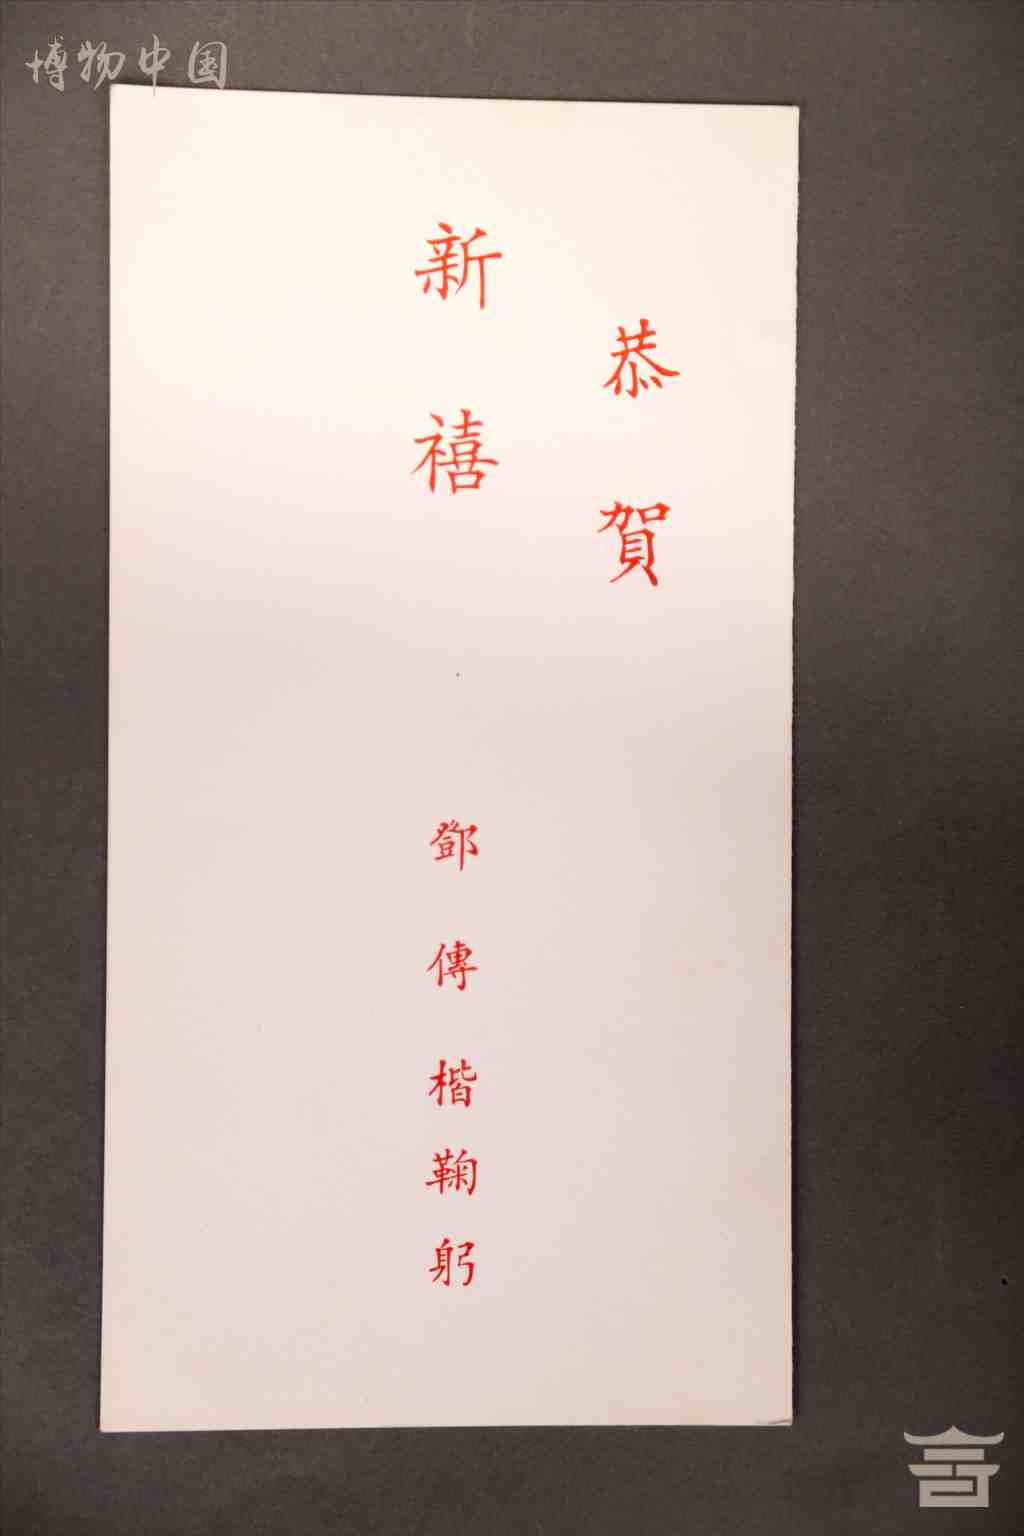 博物中国
恭賀
新禧
鄧傳楷鞠躬